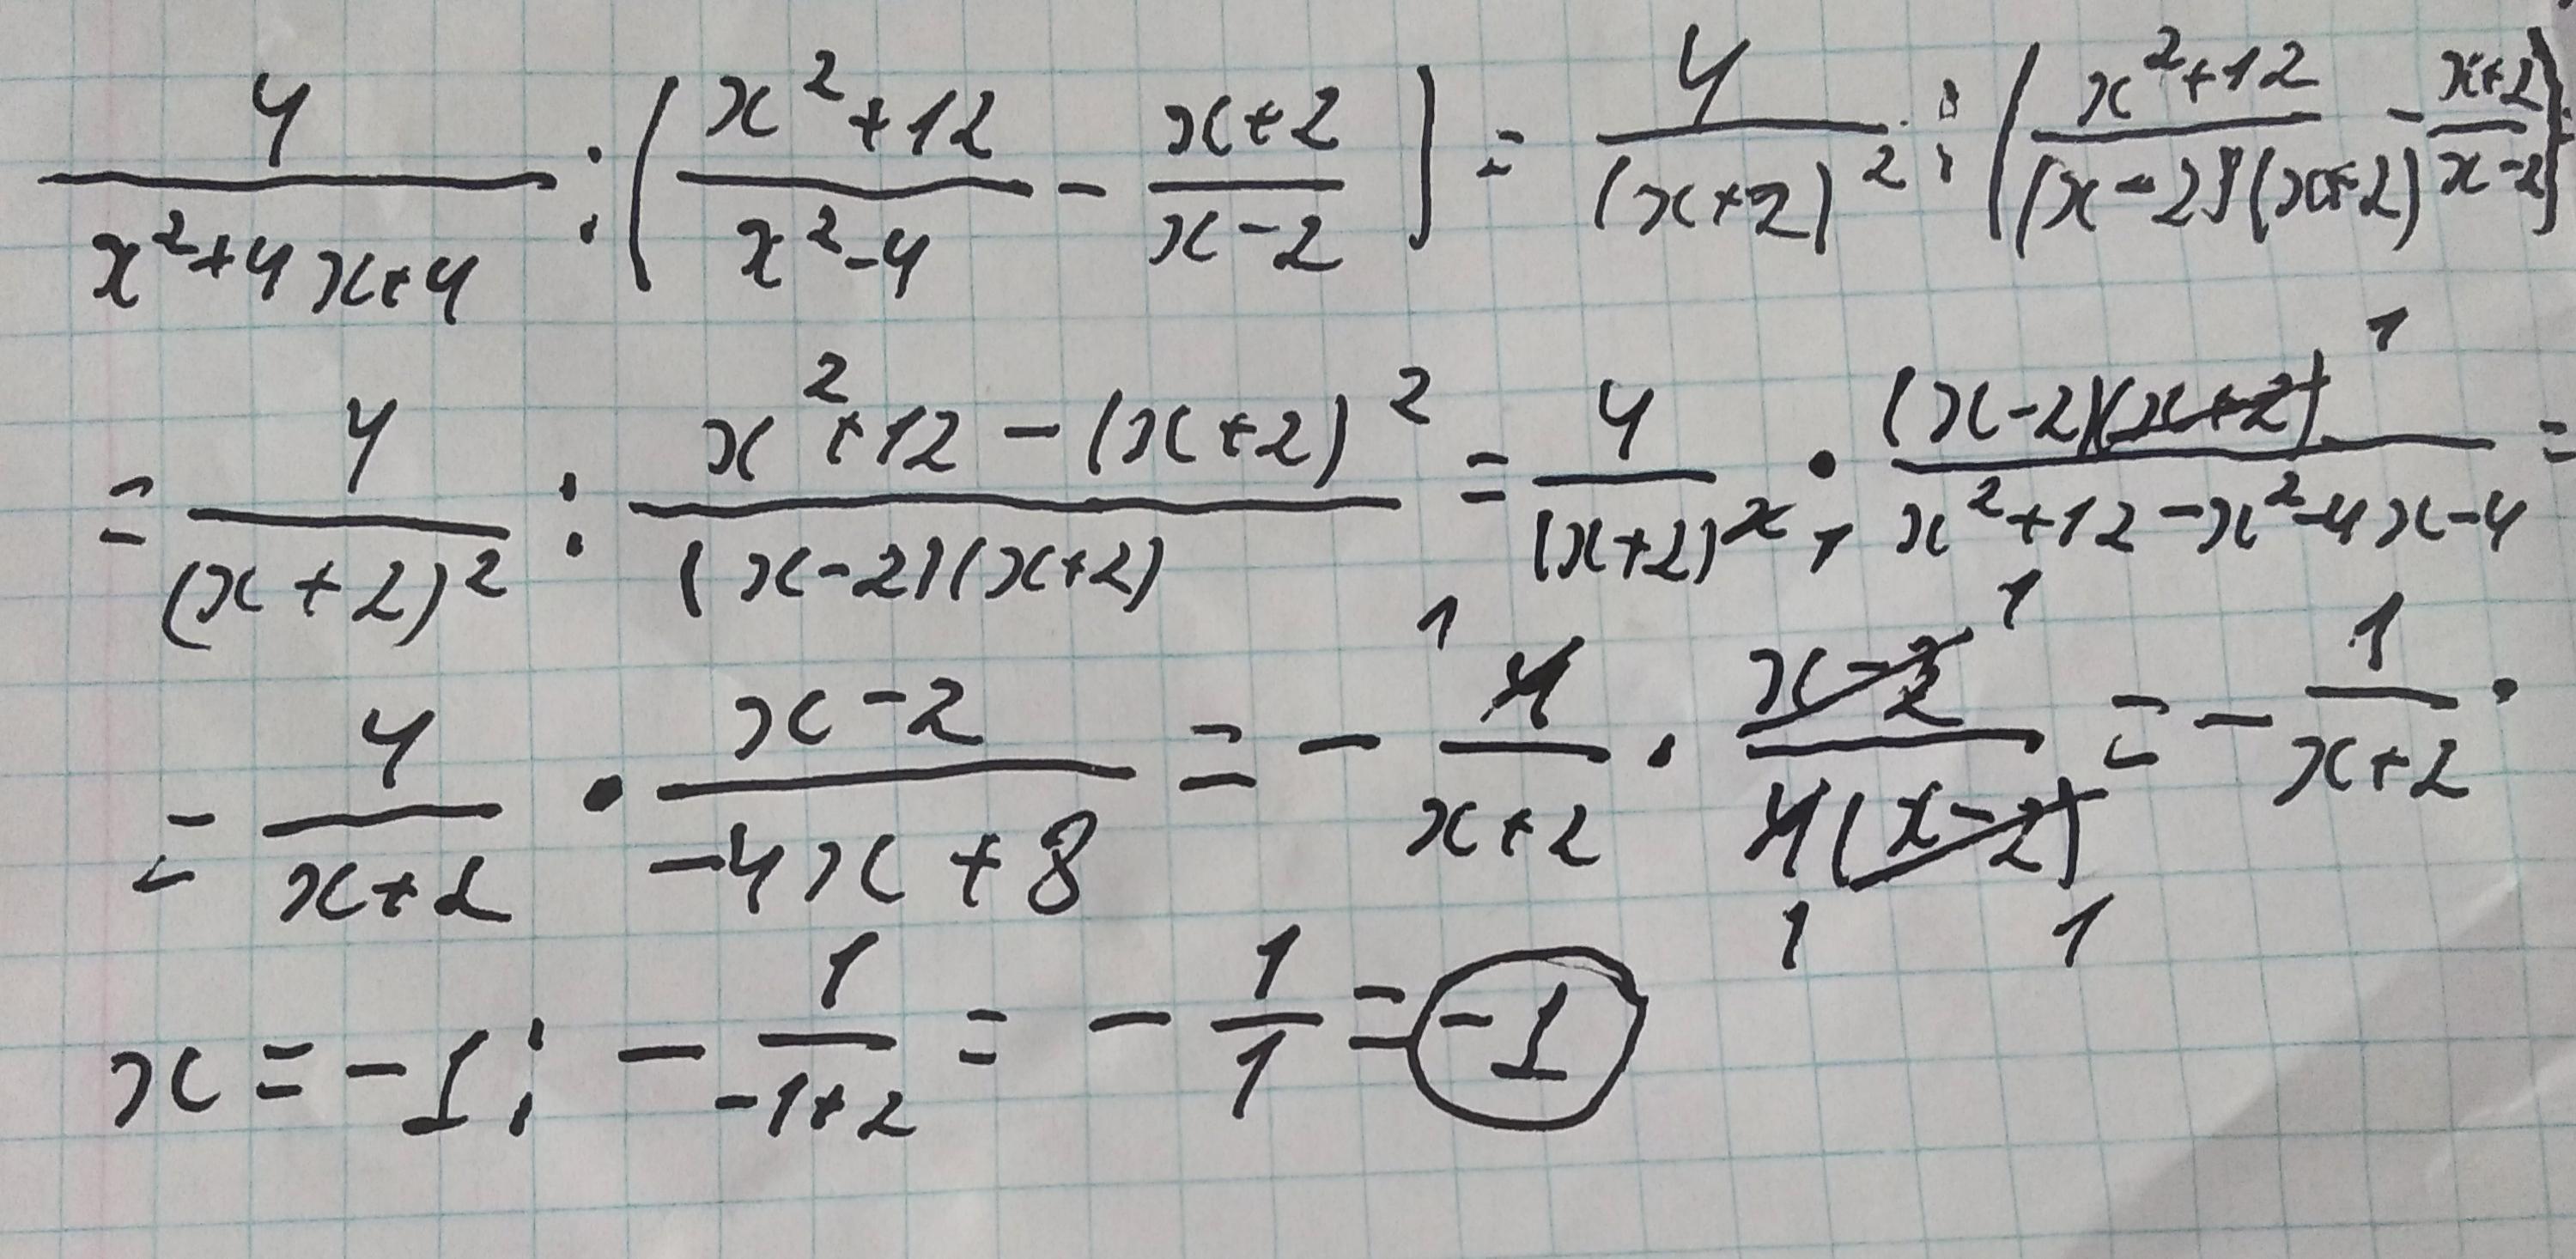 4/(x²+4x+4) : ((x²+12)/(x²-4) - (x+2)/(x-2)) = 4/(x+2)² : ((x²+12)/((x-2)(x+2)) - (x+2)/(x-2))
= 4/(x+2)² : (x²+12-(x+2)²)/((x-2)(x+2)) = 4/(x+2)² · ((x-2)(x+2))/(x²+12-x²-4x-4) =
= 4/(x+2) · (x-2)/(-4x+8) = - 4/(x+2) · (x-2)/(4(x-2)) = - 1/(x+2) .
x = -1; - 1/(-1+2) = - 1/1 = -1